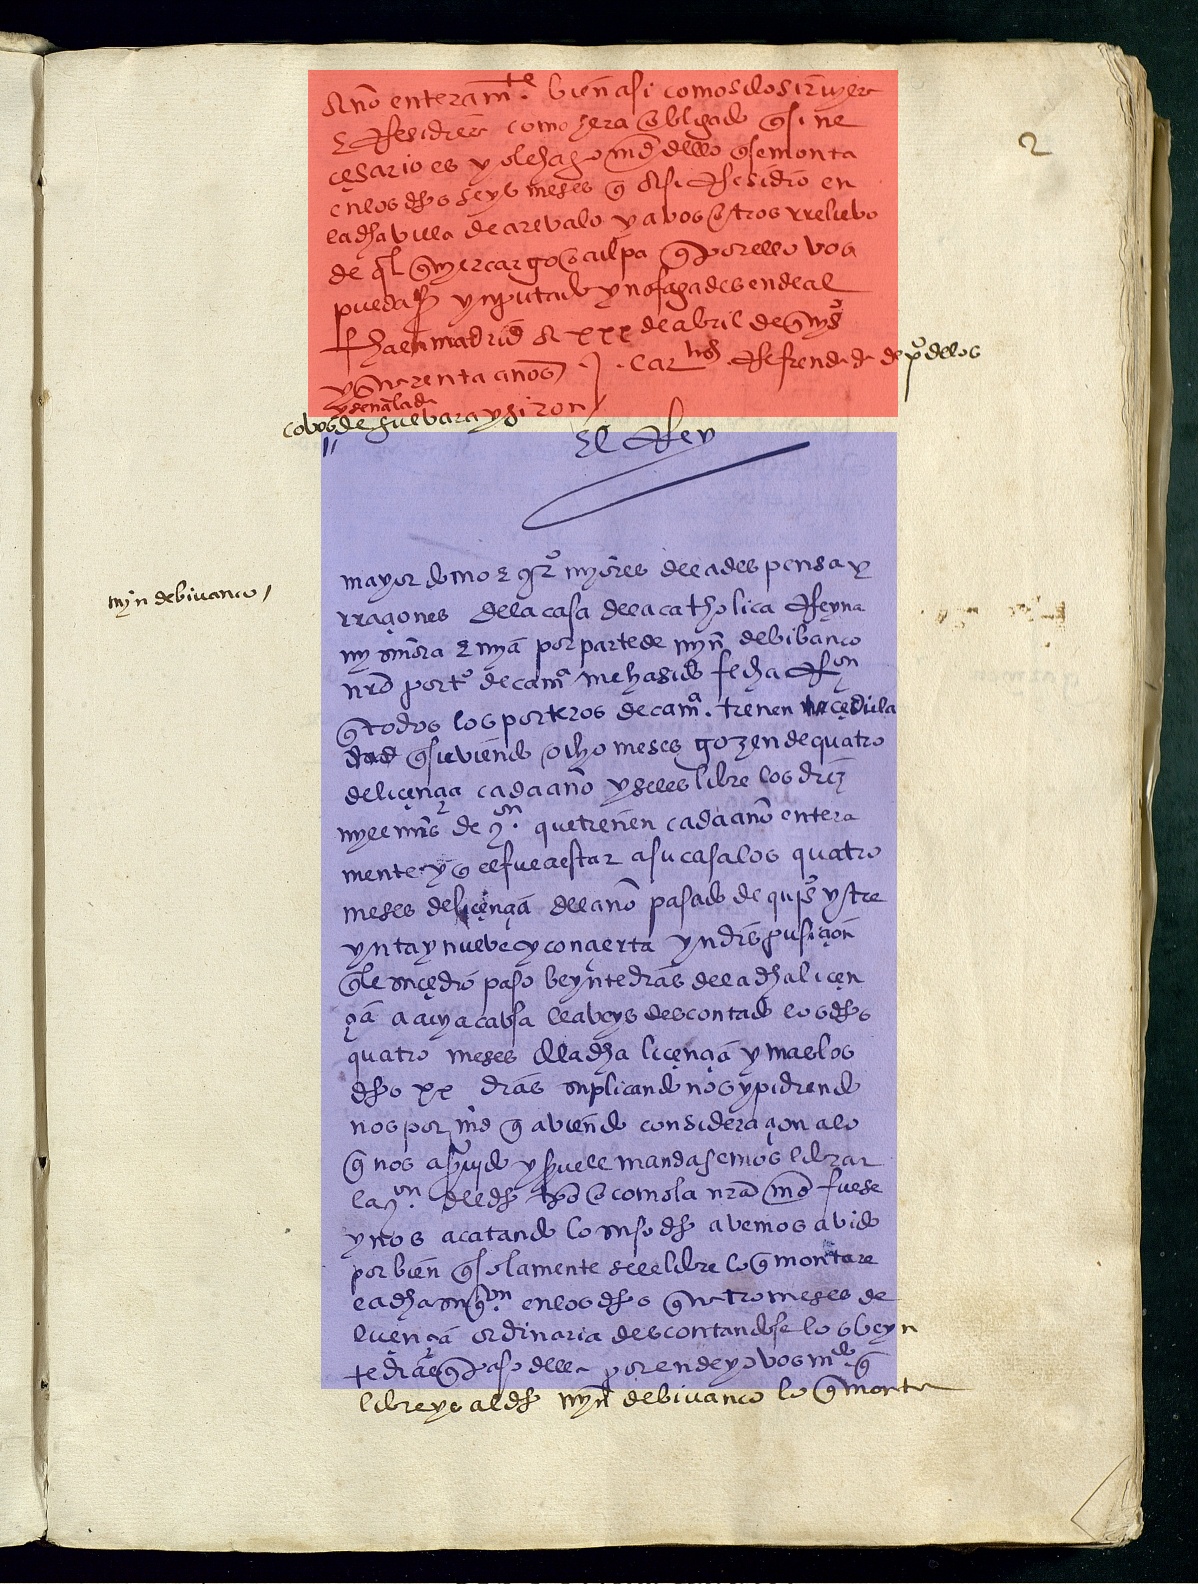 2
Año enteramte. bien asi como si lo sirviere
E Residiere como hera obligado q si ne
cesario es yo le hago md dello q se monta
en los dhos seys meses q Asi Residio en
la dha villa de arevalo y a vos otros rrelievo
de ql qujer cargo o culpa q por ello vos
pueda ser ynputado y no fagades ende al
fha en madrid A xxx de abril de qujs
y quarenta años. Carlis. Refrendada de po de los
y señalada
cobos de guevara y giron
El Rey
myn de bivanco
mayordomo E qor mayores de la despensa y
rraçiones de la casa de la catholica Reyna
mi señora E mya por parte de myn de bibanco
nro porto de cama me ha sido fecha Ron
q todos los porteros de cama. tienen çedula
q sirviendo ocho meses gozen de quatro
de liçençia cada año y se les libre los diez
myll mrs de qon. que tienen cada año entera
mente y q el fue a estar a su casa los quatro
meses de liçençia del año pasado de qujos y tre
ynta y nueve y con çierta yndispusiçion
q le suçedio paso beynte dias de la dha liçen
çia a cuya cabsa le abeys descontado los dhos
quatro meses de la dha liçençia y mas los
dhos xx dias suplicando nos y pidiendo
nos por md q abiendo consideraçion a lo
q nos a servido y sirve le mandasemos librar
la qon. del dho tpo o como la nra md fuese
y nos acatando lo suso dho avemos avido
por bien q solamente se le libre lo q montare
la dha su qon en los dhos quatro meses de
liçençia ordinaria descontandose los beyn
te dias q paso della por ende yo vos mdo q
libreys al dho myn de bivanco lo q monta